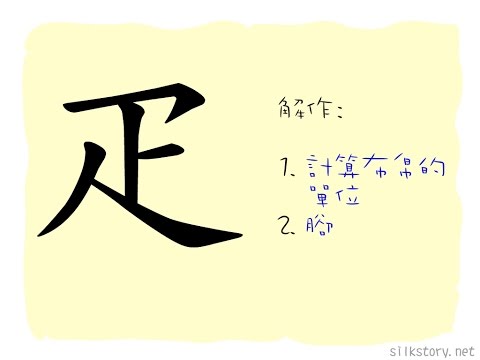 疋
解作：
1. 計算布帛的
單位
2. 腳
silkstory.net